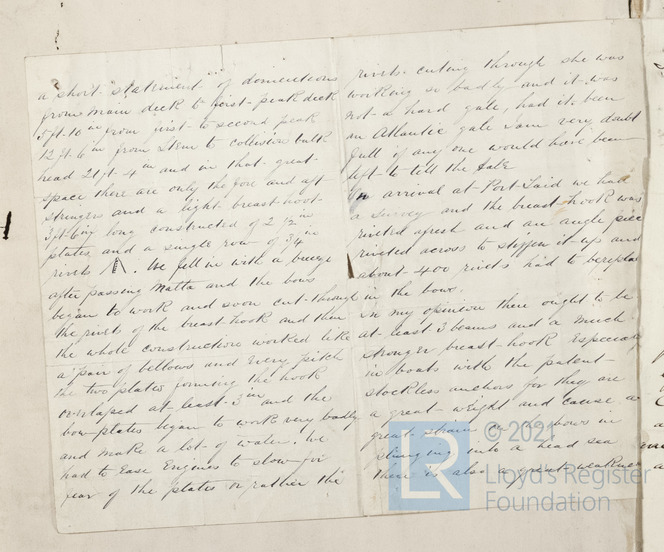 a short statement of dimentions
from main deck to first peak deck
5ft 10in from first to second peak
12ft 6in from stem to collision bulk
head 21ft 4in and in that great
space there are only the fore and aft
stringers and a light breast hoot
3ft 6in long constructed of 2 1/2in
plates and a single row of 3/4in
rivets. We fell in with a breeze
after passing Malta and the bows
began to work and soon cut through
the rivets of the breast hook and then
the whole construction worked like
a pair of bellows and every pitch
the two plates forming the hook
overlaped at least 3in and the
bow plates began to work very badly
and make a lot of water. We
had to Ease Engines to slow for
fear of the plates or rather the
rivets cuting through she was
working so badly and it was
not a hard gale, had it been
an Atlantic gale I am very doubt
full if any one would have been
left to tell the tale
On arrival at Port Said we had
a Survey and the breast hook was
riveted afresh and an angle piece
riveted across to stiffen it up and
about 400 rivets had to be repla
in the bow.
In my opinion there ought to be
at least 3 beams and a much
stronger breast hook Especially
in boats with the patent
stockless anchors for they are
a great weight and cause a
great strain on the bows in
plunging into a head sea
There is also a great weakness
LR
© 2021
Lloyd's Register
Foundation